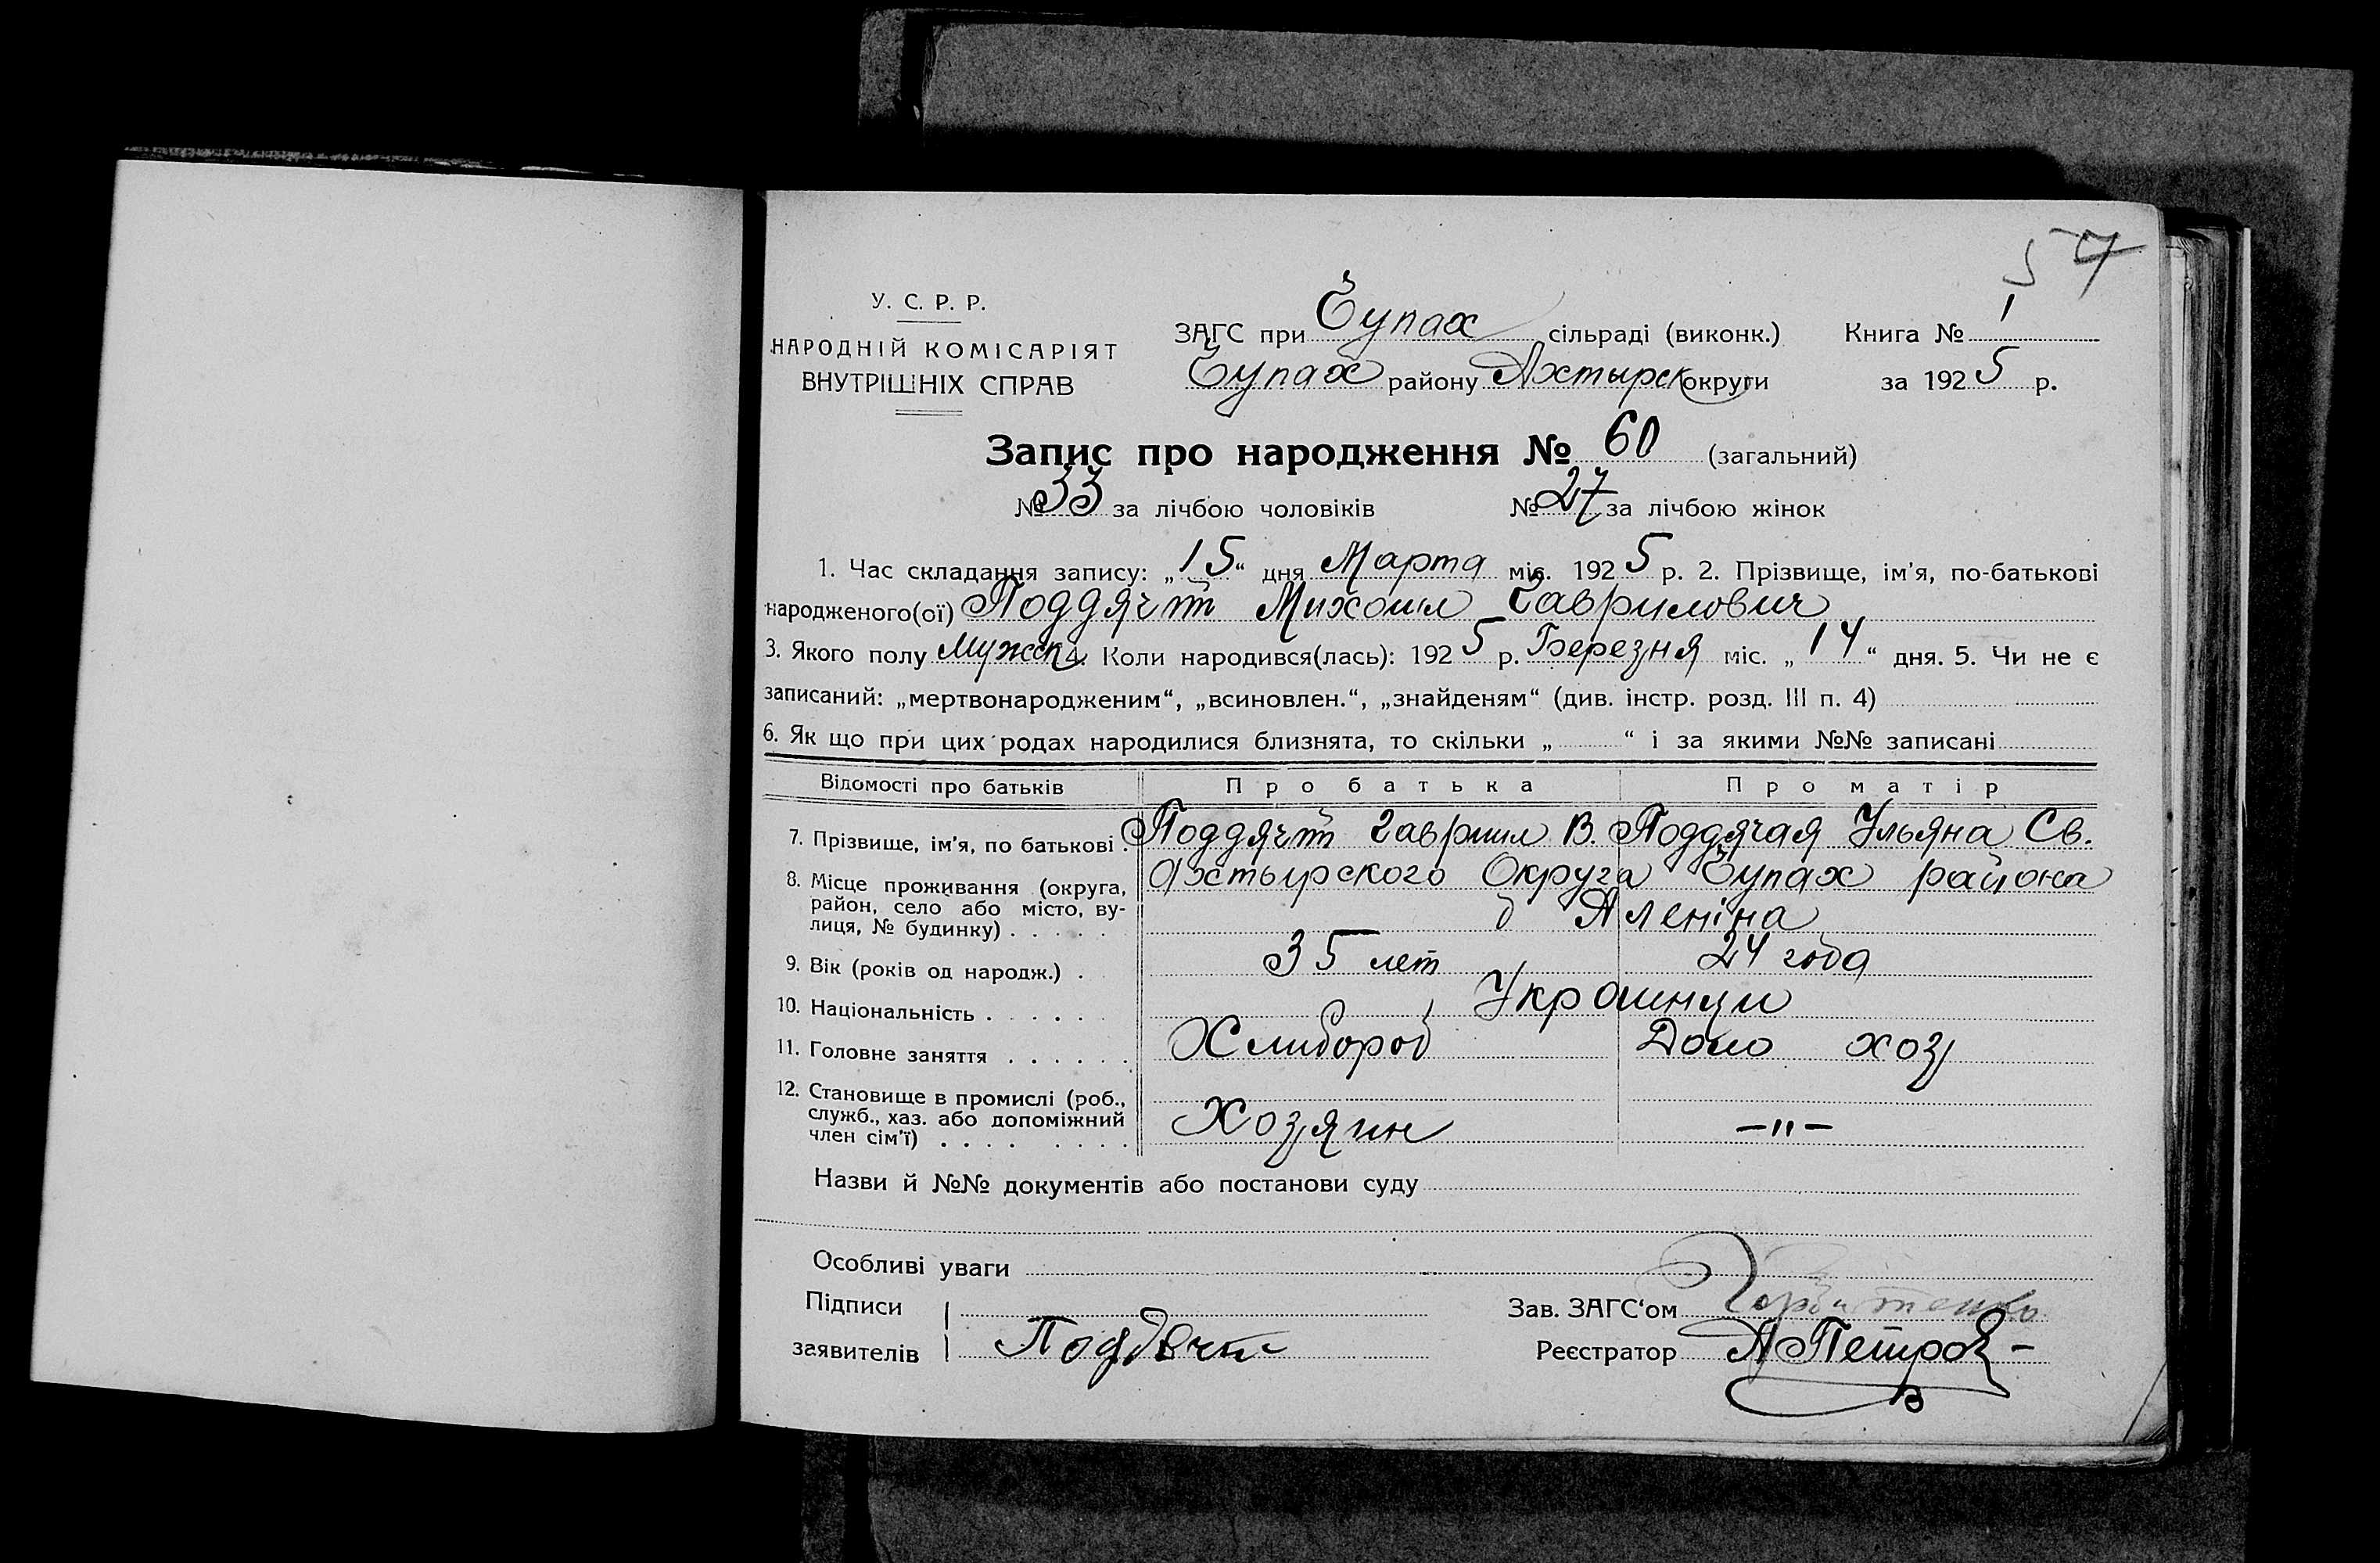 57
У. С. Р. Р.
НАРОДНІЙ КОМІСАРІЯТ
ВНУТРІШНІХ СПРАВ
ЗАГС при Чупах сільраді (виконк.) Книга № 1
Чупах району Ахтырск округи за 1925 р.
Запис про народження № 60 (загальний)
№ 33 за лічбою чоловіків № 27 за лічбою жінок
1. Час складання запису: „15“ дня Марта міс. 1925 р. 2. Прізвище, ім'я, по-батькові
народженого(ої) Поддячий Михаил Гаврилович
3. Якого полу Мужск 4. Коли народився(лась): 1925 р. Березня міс. „14“ дня. 5. Чи не є
записаний: „мертвонародженим“, „всиновлен.“, „знайденям“ (див. інстр. розд. III п. 4)
6. Як що при цих родах народилися близнята, то скільки „ “ і за якими №№ записані
Відомості про батьків Про батька Про матір
7. Прізвище, ім'я, по батькові . Поддячий Гавриил В. Поддячая Ульяна Св.
8. Місце проживання (округа, район, село або місто, вулиця, № будинку) . . . . . Ахтырского Округа Чупах района
д Аленіна
9. Вік (років од народж.) . 35 лет 24 года
10. Національність . . . . . . Украинци
11. Головне заняття . . . . . . Хлибороб Домо хоз
12. Становище в промислі (роб., служб., хаз. або допоміжний член сім'ї) . . . . . . . . Хозяин —"—
Назви й №№ документів або постанови суду
Особливі уваги
Підписи
заявителів Поддячий
Зав. ЗАГС'ом
Реєстратор А Петров